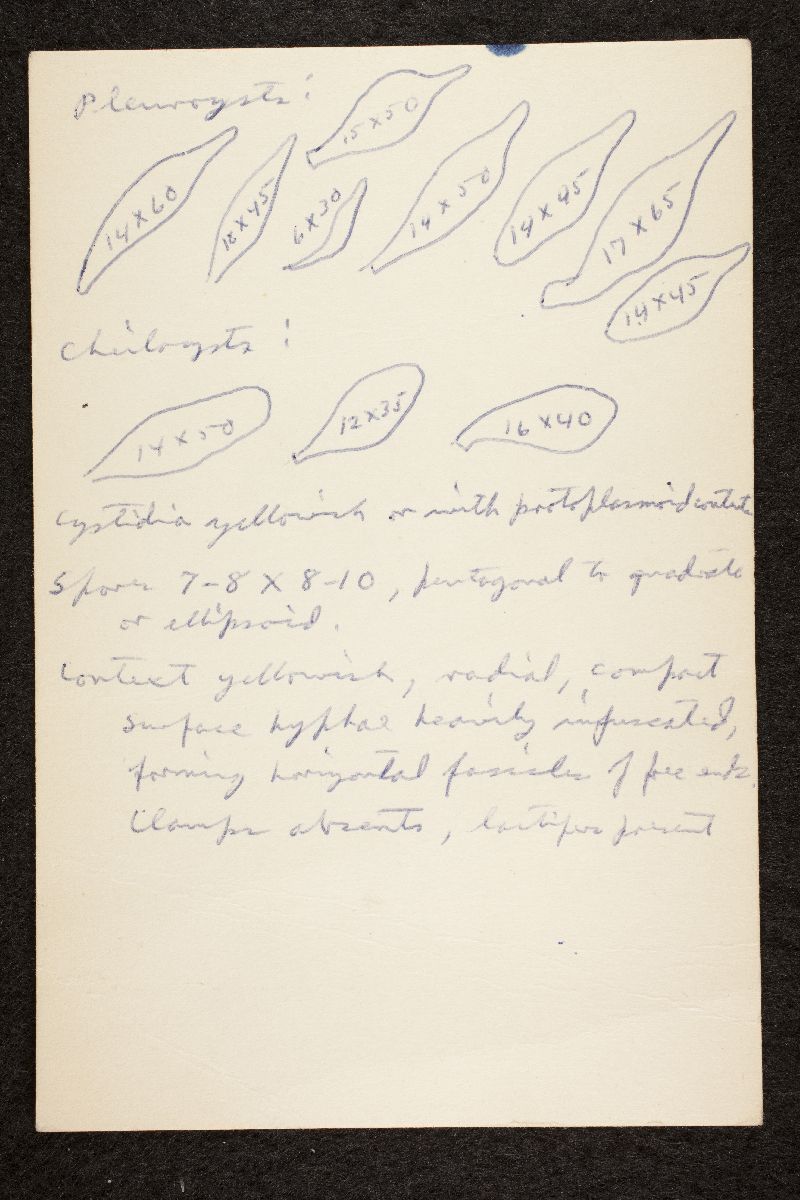 Pleurocysts:
15 x 50
14 x 60
12 x 45
6 x 30
14 x 50
14 x 45
17 x 65
14 x 45
Cheilocysts:
14 x 50
12 x 35
16 x 40
Cystidia yellowish or with protoplasmoid contents
Spores 7-8 X 8-10, pentagonal to quadrate
or ellipsoid.
Context yellowish, radial, compact
Surface hyphae heavily infuscated,
forming horizontal fascicles of free ends.
Clamps absent, lactifers present